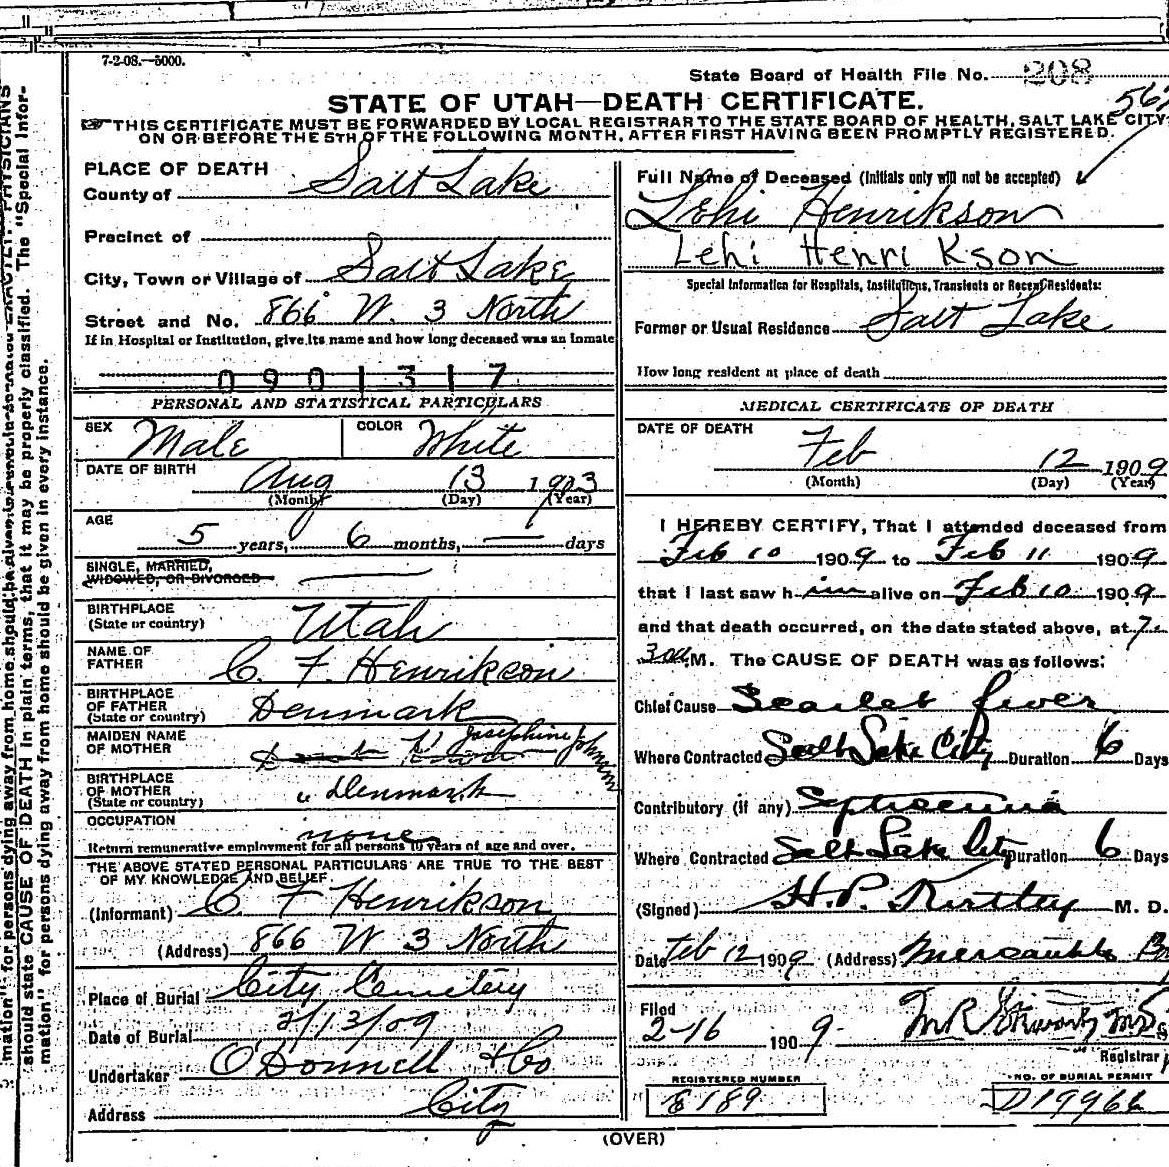 7-2-08.—5000.
State Board of Health File No. 208
STATE OF UTAH—DEATH CERTIFICATE.
562
THIS CERTIFICATE MUST BE FORWARDED BY LOCAL REGISTRAR TO THE STATE BOARD OF HEALTH, SALT LAKE CITY
ON OR BEFORE THE 5TH OF THE FOLLOWING MONTH, AFTER FIRST HAVING BEEN PROMPTLY REGISTERED.
PLACE OF DEATH
County of Salt Lake
Precinct of
City, Town or Village of Salt Lake
Street and No. 866 W. 3 North
If in Hospital or Institution, give its name and how long deceased was an inmate
0901317
PERSONAL AND STATISTICAL PARTICULARS
SEX Male COLOR White
DATE OF BIRTH Aug 13 1903
(Month) (Day) (Year)
AGE
5 years, 6 months, — days
SINGLE, MARRIED,
WIDOWED, OR DIVORCED
BIRTHPLACE
(State or country) Utah
NAME OF
FATHER C. F. Henrikson
BIRTHPLACE
OF FATHER
(State or country) Denmark
MAIDEN NAME
OF MOTHER Josephine Johnson
BIRTHPLACE
OF MOTHER
(State or country) " Denmark
OCCUPATION
none
Return remunerative employment for all persons 10 years of age and over.
THE ABOVE STATED PERSONAL PARTICULARS ARE TRUE TO THE BEST
OF MY KNOWLEDGE AND BELIEF
(Informant) C. F Henrikson
(Address) 866 W 3 North
Place of Burial City Cemetery
Date of Burial 2/13/09
Undertaker O'Donnell & Co
Address City
Full Name of Deceased (Initials only will not be accepted)
Lehi Henrikson
Lehi Henrikson
Special Information for Hospitals, Institutions, Transients or Recent Residents:
Former or Usual Residence Salt Lake
How long resident at place of death
MEDICAL CERTIFICATE OF DEATH
DATE OF DEATH
Feb 12 1909
(Month) (Day) (Year)
I HEREBY CERTIFY, That I attended deceased from
Feb 10 1909 to Feb 11 1909
that I last saw him alive on Feb 10 1909
and that death occurred, on the date stated above, at 7
30 a M. The CAUSE OF DEATH was as follows:
Chief Cause Scarlet fever
Where Contracted Salt Lake City Duration 6 Days
Contributory (if any) Septicemia
Where Contracted Salt Lake City Duration 6 Days
(Signed) H. P. Kirtley M. D.
Date Feb 12 1909 (Address) Mercantile B
Filed
2-16 1909
Registrar
REGISTERED NUMBER
E189
NO. OF BURIAL PERMIT
D19966
(OVER)
mation" for persons dying away from home should be given in every instance.
should state CAUSE OF DEATH in plain terms, that it may be properly classified. The "Special Infor-